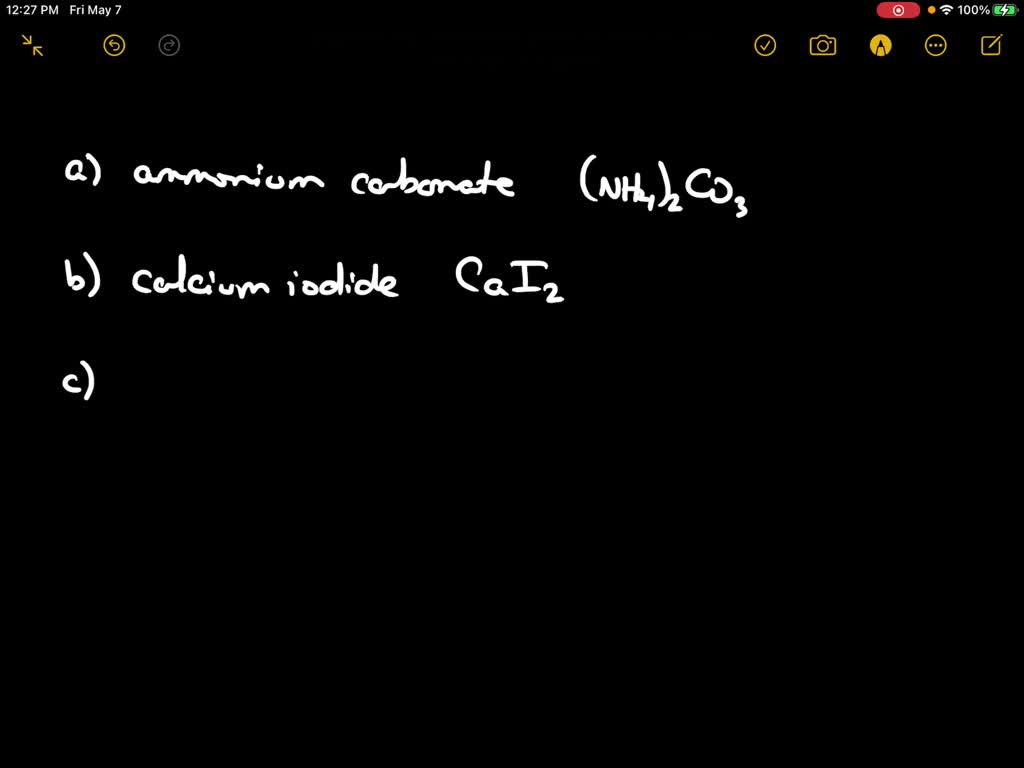 12:27 PM Fri May 7 100%
a) ammonium carbonate (NH₄)₂CO₃
b) calcium iodide CaI₂
c)